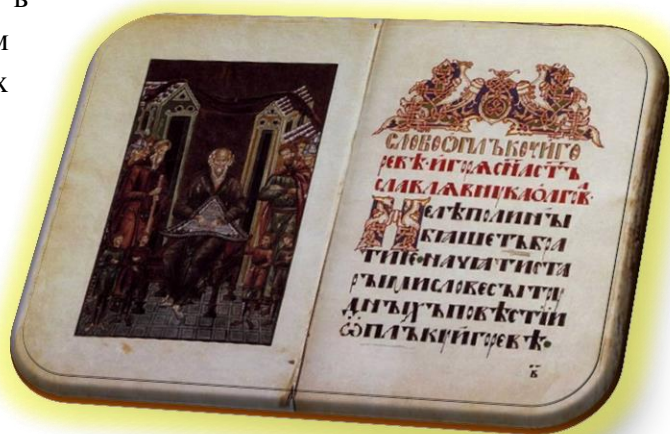 в
м
х
СЛОВООПЛЪКꙊИГО
РЕВѢ·ИГОРѦСЙНАСТЪ
СЛАВЛѦВНꙊКАОЛГОВ·
НЕЛѢПОЛИНЫ
БѦШЕТЪБРА
ТИЕ·НАЧѦТИСТА
РЫМИСЛОВЕСЫТРꙊ
ДНЫХЪПОВѢСТІЙ
ѾПЛЪКꙊИГОРЕВѢ·